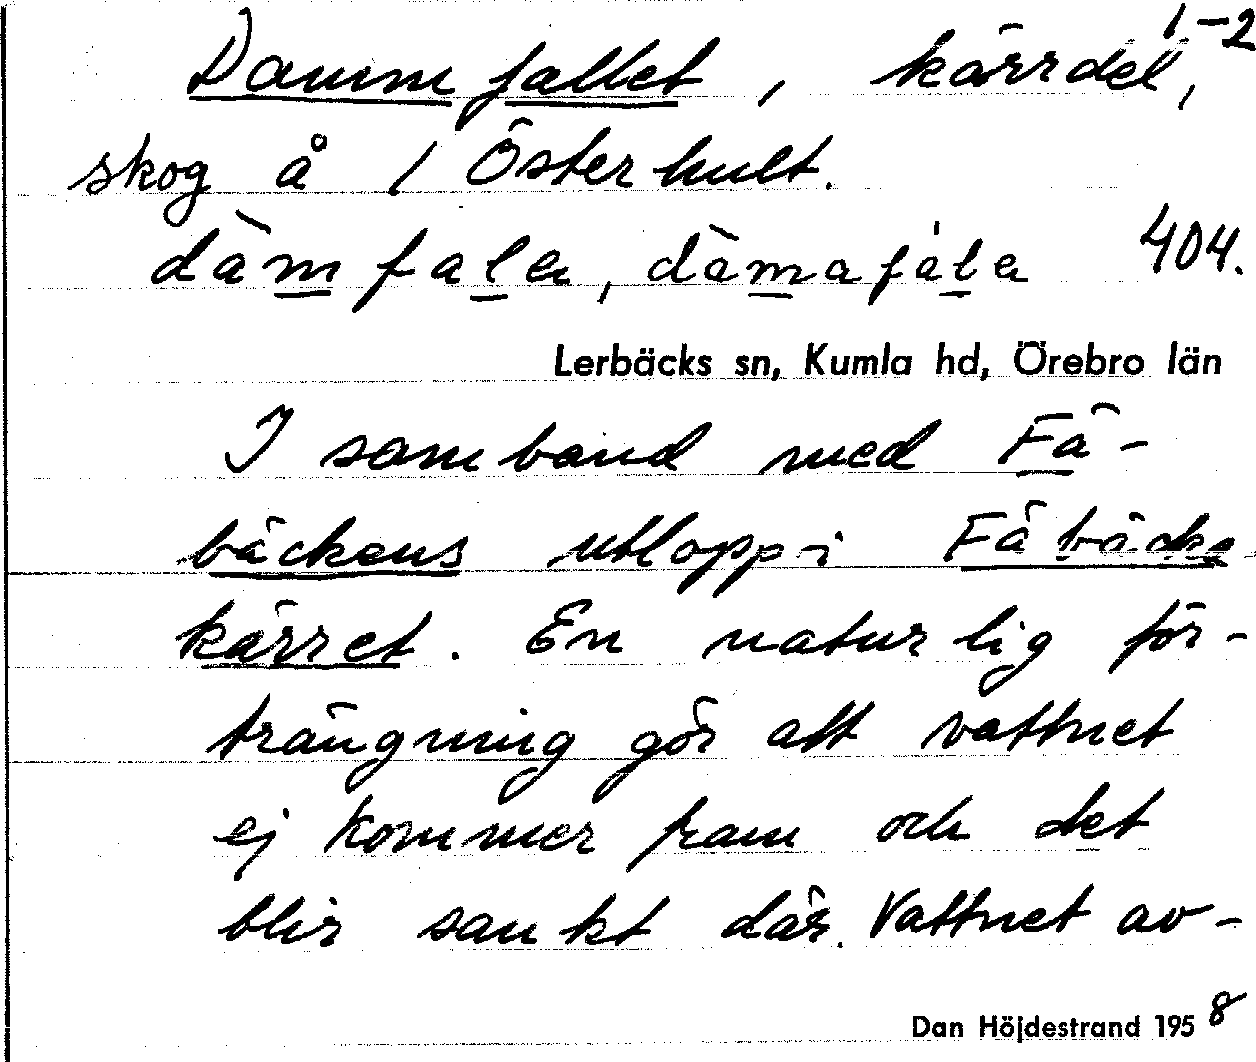 1-2
Dammfallet, kärrdel,
skog å 1 Österhult.
dàmfalen, dàmafàlen 404.
Lerbäcks sn, Kumla hd, Örebro län
I samband med Få-
bäckens utlopp i Fåbäcks-
kärret. En naturlig för-
trängning gör att vattnet
ej kommer fram och det
blir sankt där. Vattnet av-
Dan Höjdestrand 1958